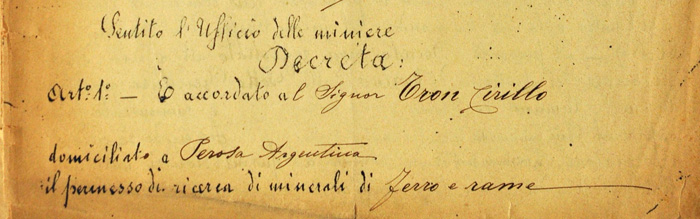 Sentito l'Ufficio delle miniere
Decreta:
Art.º 1º — È accordato al Signor Tron Cirillo
domiciliato a Perosa Argentina
il permesso di ricerca di minerali di ferro e rame